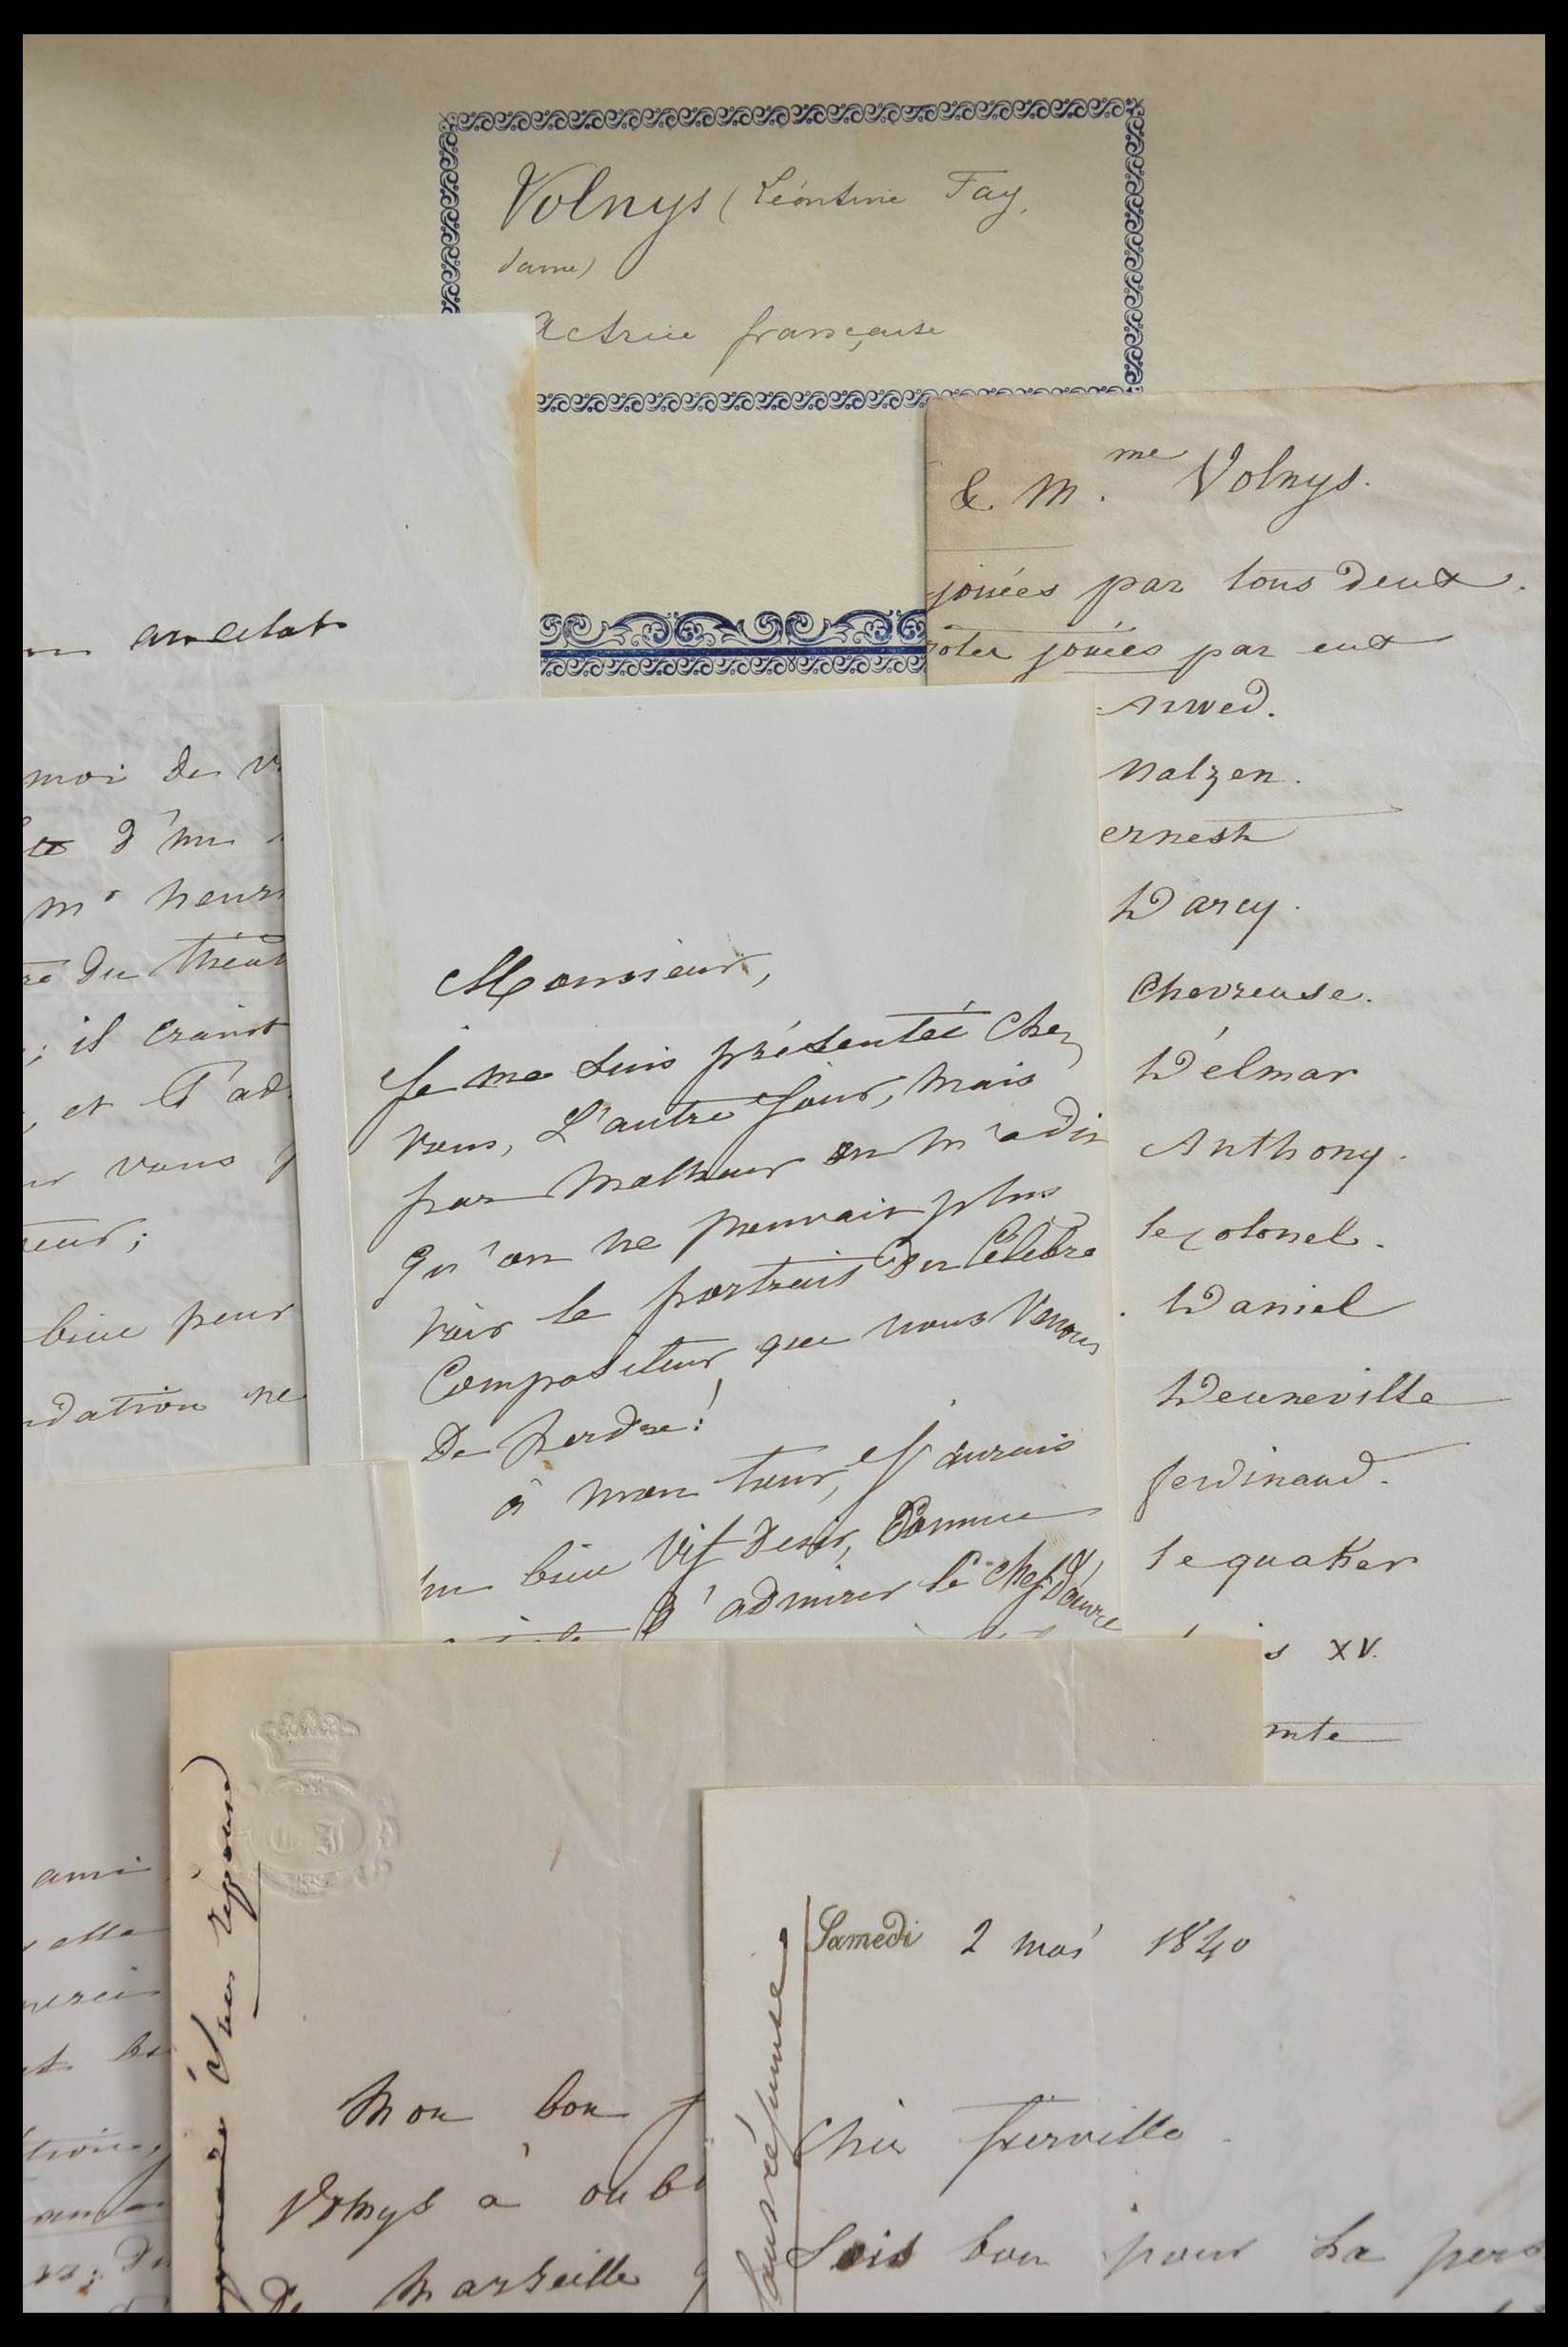 Volnys (Léontine Fay,
dame)
Actrice française
& M.me Volnys.
jouées par tous deux.
jouées par eux
Arwed.
Malzen.
ernest
Darcy.
Chevreuse.
Délmar
Anthony.
le colonel.
Daniel
Denneville
ferdinand.
le quaker
XV.
mte
ancelot
moi de
d'un
mr henri
du théat
; il craint
, et l'ad
vous
eur;
bien peur
dation ne
Monsieur,
Je me suis présentée chez
vous, L'autre Jour, mais
par malheur on m'a dit
qu'on ne pouvait plus
voir le portrait du Célèbre
Compositeur que nous venons
De perdre!
à mon tour, J'aurais
un bien vif desir, Comme
d'admirer le chef d'œuvre
ami
merci
sans réponse
C J
Mon bon
Volnys a oub
De Marseille
Samedi 2 mai 1840
sans réponse
Cher ferville
Sois bon pour la pers